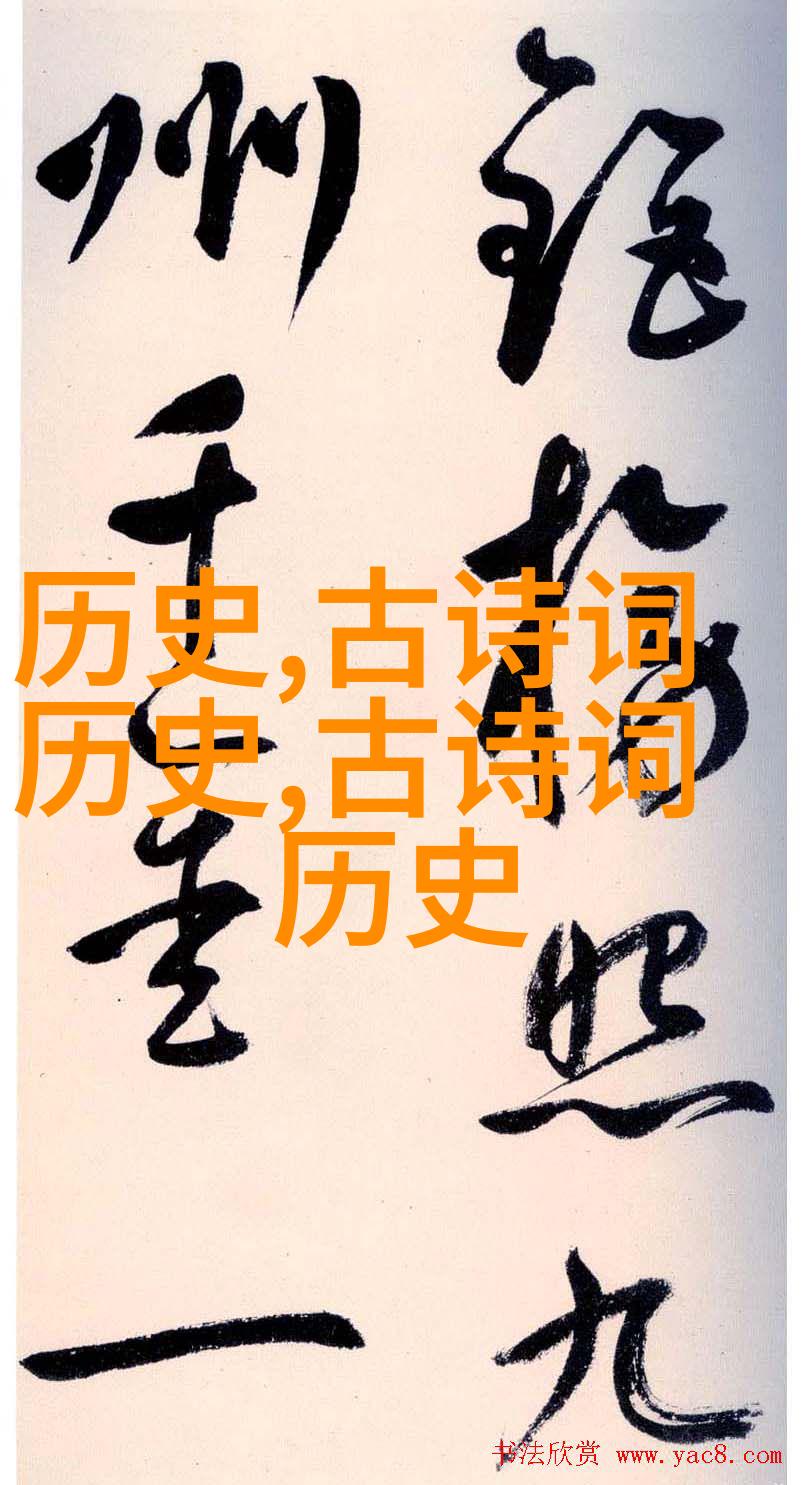 照九
州千一
历史,古诗词
历史,古诗词
历史
书法欣赏 www.yac8.com